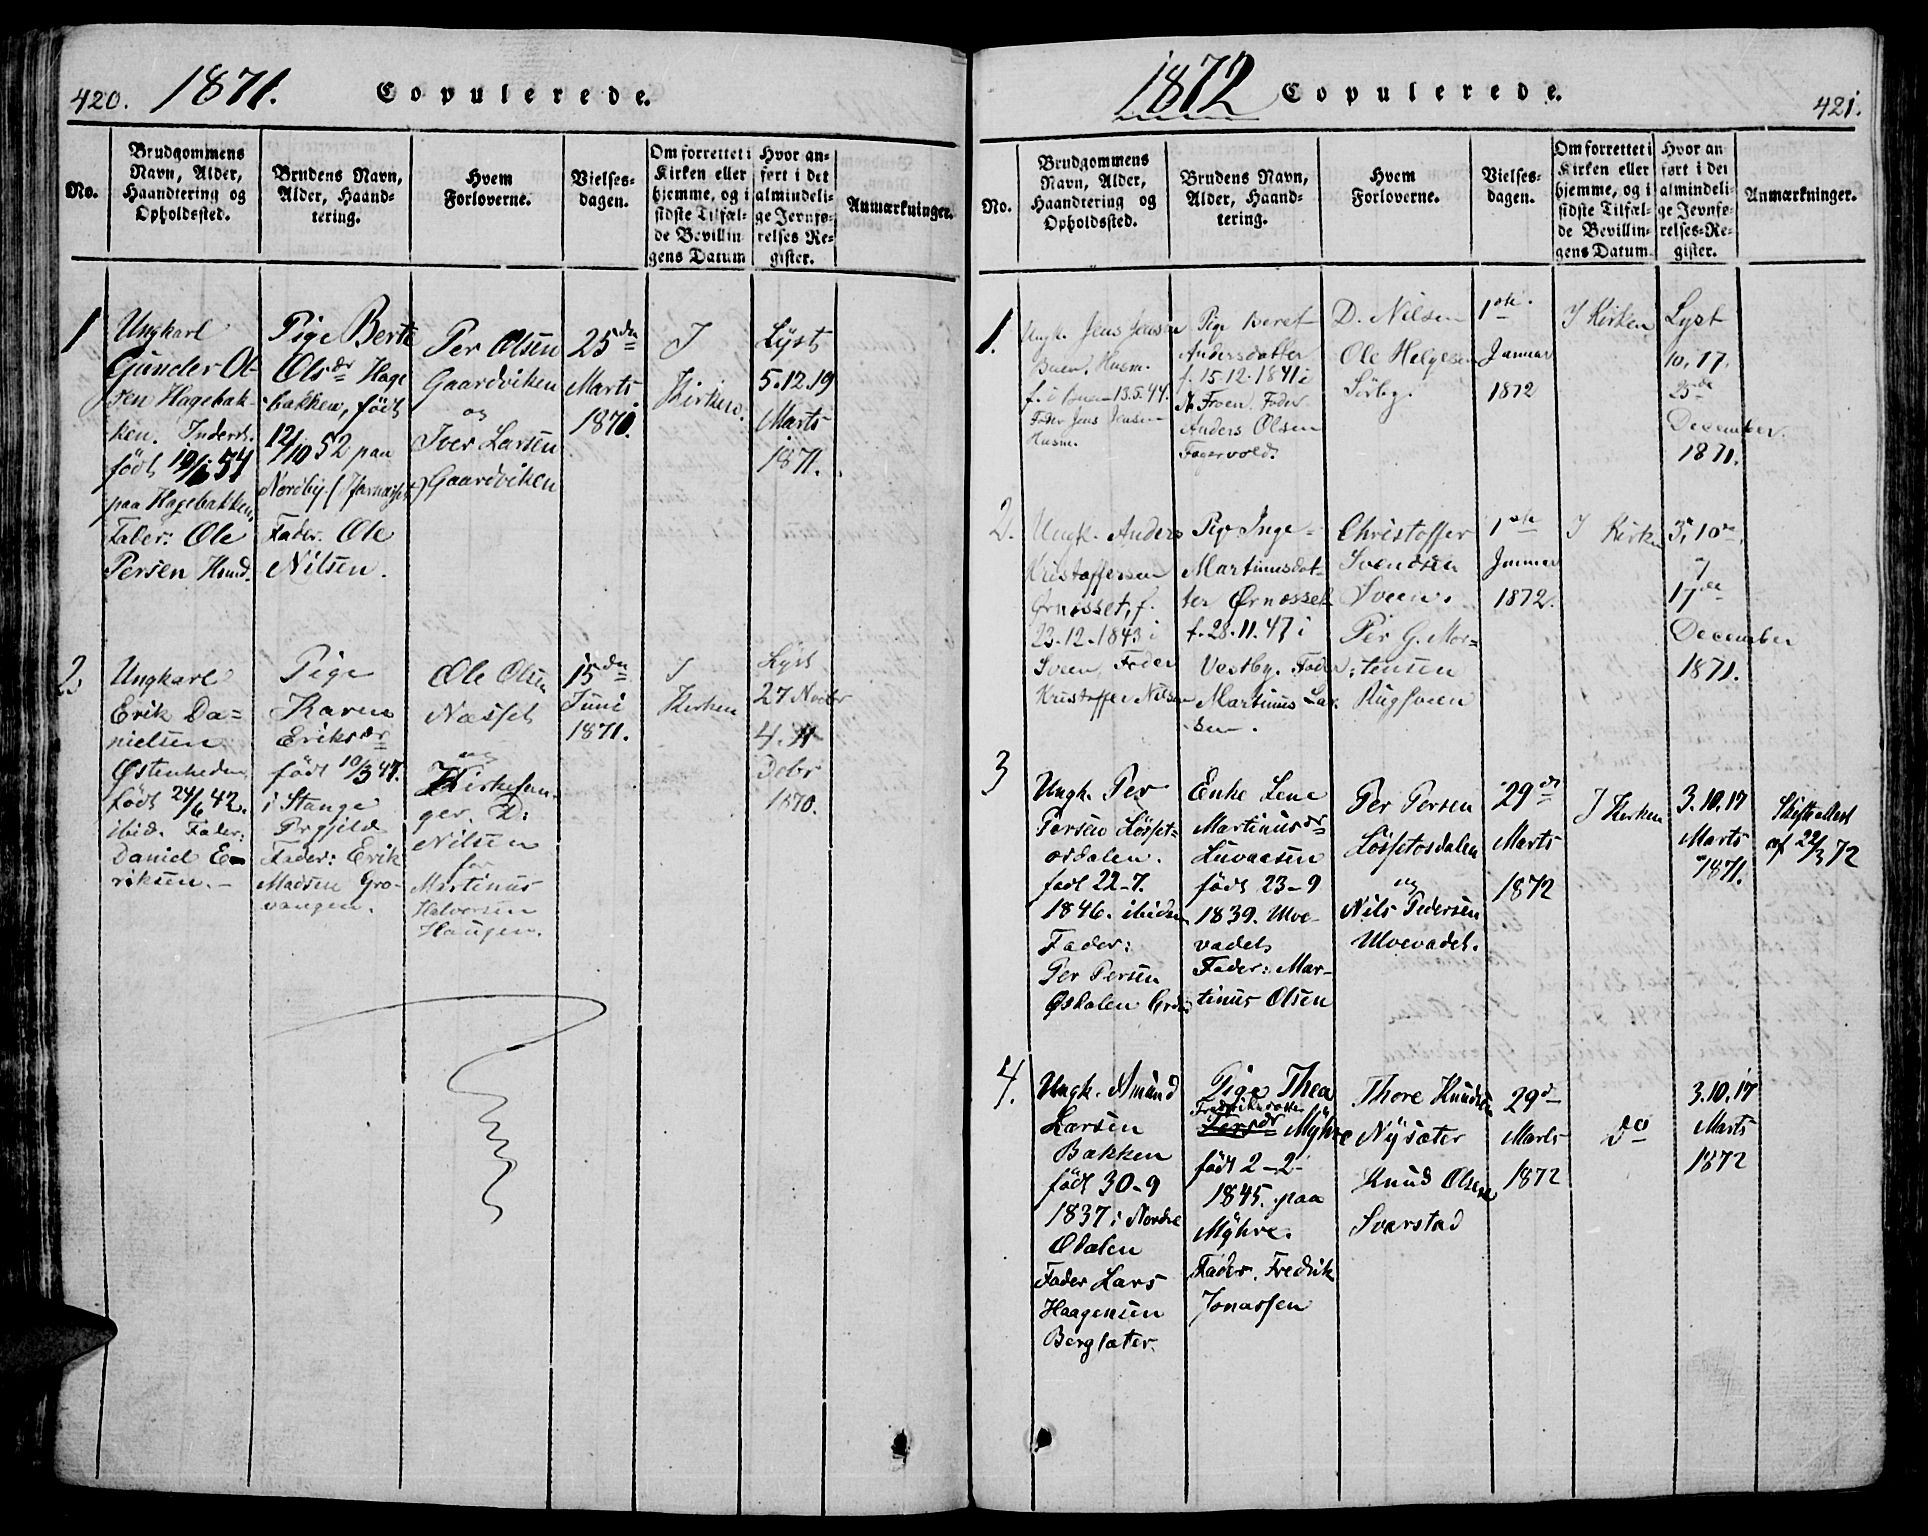 420. 1871. Copulerede.
No.
Brudgommens
Navn, Alder,
Haandtering og
Opholdssted.
Brudens Navn,
Alder, Haand-
tering.
Hvem
Forloverne.
Vielses-
dagen.
Om forrettet i
Kirken eller
hjemme, og i
sidste Tilfæl-
de Bevillin-
gens Datum
Hvor an-
ført i det
almindeli-
ge Jevnfø-
relses-Re-
gister.
Anmærkninger.
1
Ungkarl
Gunder Ol-
sen Hagebak-
ken. Inderst.
født
paa Hagebakken,
Fader: Ole
Persen Husmd.
Pige Berte
Olsdr Hage
bakken, født
12/10 52 paa
Nordby
Fader. Ole
Nilsen.
Per Olsen
Gaardviken
og
Iver Larsen
Gaardviken
25de
Marts
1871.
I
Kirken.
Lyst
5.12.19
Marts
1871.
2.
Ungkarl
Erik Da=
nielsen
Østenheden,
født 24/6 42.
ibid. Fader:
Daniel E-
riksen.-
Pige
Karen
Eriksdr
født 10/3 47.
i Stange
Prgjeld
Fader: Erik
Madsen Gro-
vangen.
Ole Olsen
Næsset
og
Kirkesan-
ger. D:
Nilsen
for
Martinus
Halvorsen
Haugen.
15de
Juni
1871.
I
Kirken
Lyst
27 Novbr
4. 11
Debr
1870.
1872 Copulerede. 421.
No.
Brudgommens
Navn, Alder,
Haandtering og
Opholdssted.
Brudens Navn,
Alder, Haand-
tering.
Hvem
Forloverne.
Vielses-
dagen.
Om forrettet i
Kirken eller
hjemme, og i
sidste Tilfæl-
de Bevillin-
gens Datum.
Hvor an-
ført i det
almindeli-
ge Jevnfø-
relses-Re-
gister.
Anmærkninger.
1.
Ungk. Jens Jensen
Buen, Husm.
f. i Buen 13.5.44.
Fader Jens Jensen
Husm.
Pige Beret
Andersdatter
f. 15.12.1841 i
Froen. Fader
Anders Olsen
Fagervold.
D. Nilsen
Ole Helgesen
Sörby.
1ste
Januar
1872
I Kirken
Lyst
10, 17,
25de
December
1871.
2.
Ungk. Anders
Kristoffersen
Ørnosset, f.
23.12.1843 i
Sveen, Fader
Kristoffer Nilsen
Pige Inge-
Martinusdat-
ter Ørnosset
f. 28.11.47 i
Vestby. Fader:
Martinus Lar-
sen.
Christoffer
Svendsen
Sveen.
Per G. Mor-
tensen
Rugsveen
1ste
Januar
1872.
I Kirken
3, 10de
17de
December
1871.
3
Ungk. Per
Persen Løsset-
osdalen.
født 22-7.
1846. ibidem
Fader:
Per Persen
Osdalen Grdr
Enke Lene
Martinusdr
Luvaasen
født 23-9
1839. Ulve-
vadet
Fader: Mar-
tinus Olsen
Per Persen
Løssetosdalen
og
Nils Pedersen
Ulvevadet.
29de
Marts
1872
I Kirken
3.10.17
Marts
1871.
Skifteattest
af 22/3 72
4.
Ungk. Amund
Larsen
Bakken
født 30-9
1837 i Nordre
Odalen
Fader Lars
Haagensen
Bergsæter.
Pige Thea
Fredriksdatter
Persdr Myhre
født 2-2-
1845. paa
Myhre.
Fader. Fredrik
Jonassen
Thore Knudsen
Nysæter
Knud Olsen
Svarstad
29d
Marts
1872
do
3.10.17
Marts
1872